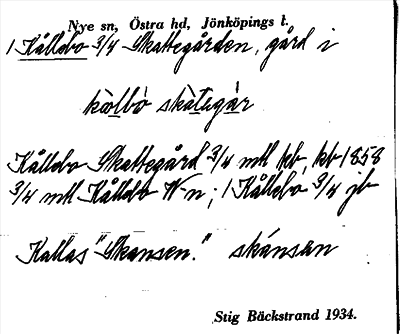 Nye sn, Östra hd, Jönköpings l.
1 Kållebo 3/4 Skattegården, gård i
kòlbò skàtegàr
Kållebo Skattegård 3/4 mtl kb, kb 1858
3/4 mtl Kållebo N-n; 1 Kållebo 3/4 jb
Kallas "Skansen." skánsen
Stig Bäckstrand 1934.